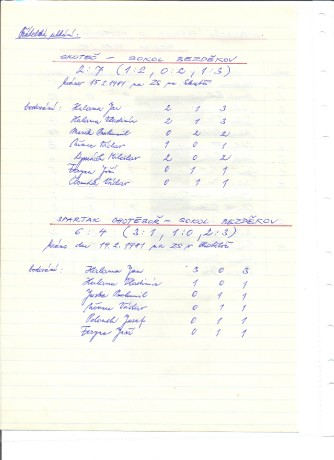 Přátelská utkání:
SKUTEČ - SOKOL BEZDĚKOV
2 : 7 (1:2, 0:2, 1:3)
hráno 15.2.1981 na ZS ve Skutči
bodování: Halama Jan 2 1 3
Halama Vladimír 2 1 3
Bohumil 0 2 2
Václav 1 0 1
Miloslav 2 0 2
Jiří 0 1 1
Václav 0 1 1
SPARTAK CHOTĚBOŘ - SOKOL BEZDĚKOV
6 : 4 (3:1, 1:0, 2:3)
hráno dne 19.2.1981 na ZS v Chotěboři
bodování: Halama Jan 3 0 3
Halama Vladimír 1 0 1
Bohumil 0 1 1
Václav 0 1 1
Josef 0 1 1
Jiří 0 1 1